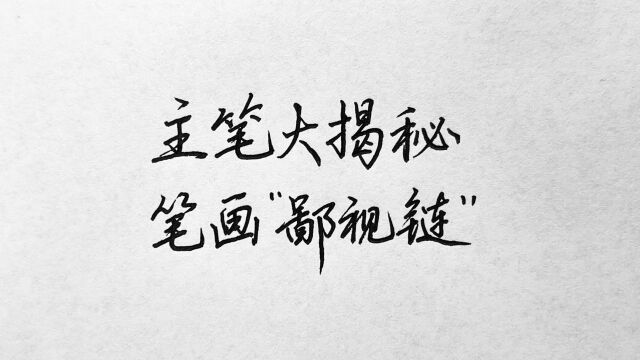 主笔大揭秘
笔画"鄙视链"